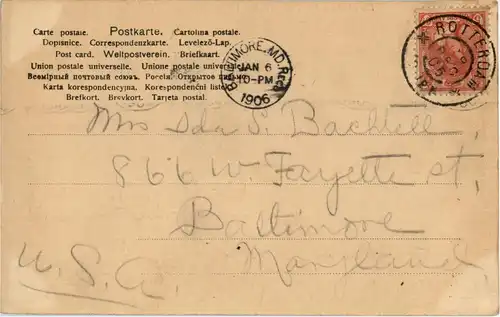 Carte postale. Postkarte. Cartolina postale.
Dopisnice. Correspondenzkarte. Levelező-Lap.
Post card. Weltpostverein. Briefkaart.
Union postale universelle. Unione postale
Всемірный почтовый союзъ. Россія. Открытое
Karta korespondencyjna. Korespondenční listek
Brefkort. Brevkort. Tarjeta postal.
BALTIMORE, MD. Rec'd
JAN 6
10-PM
1906
ROTTERDAM
Miss Ida S. Bachtell
866 W. Fayette st,
Baltimore
Maryland
U.S.A.